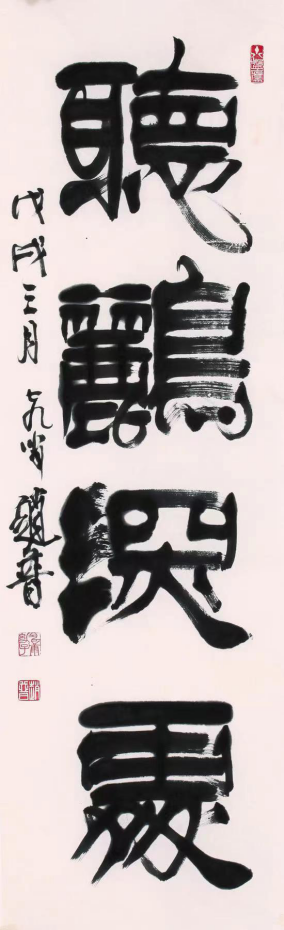 聽鸝深處
戊戌三月 趙普